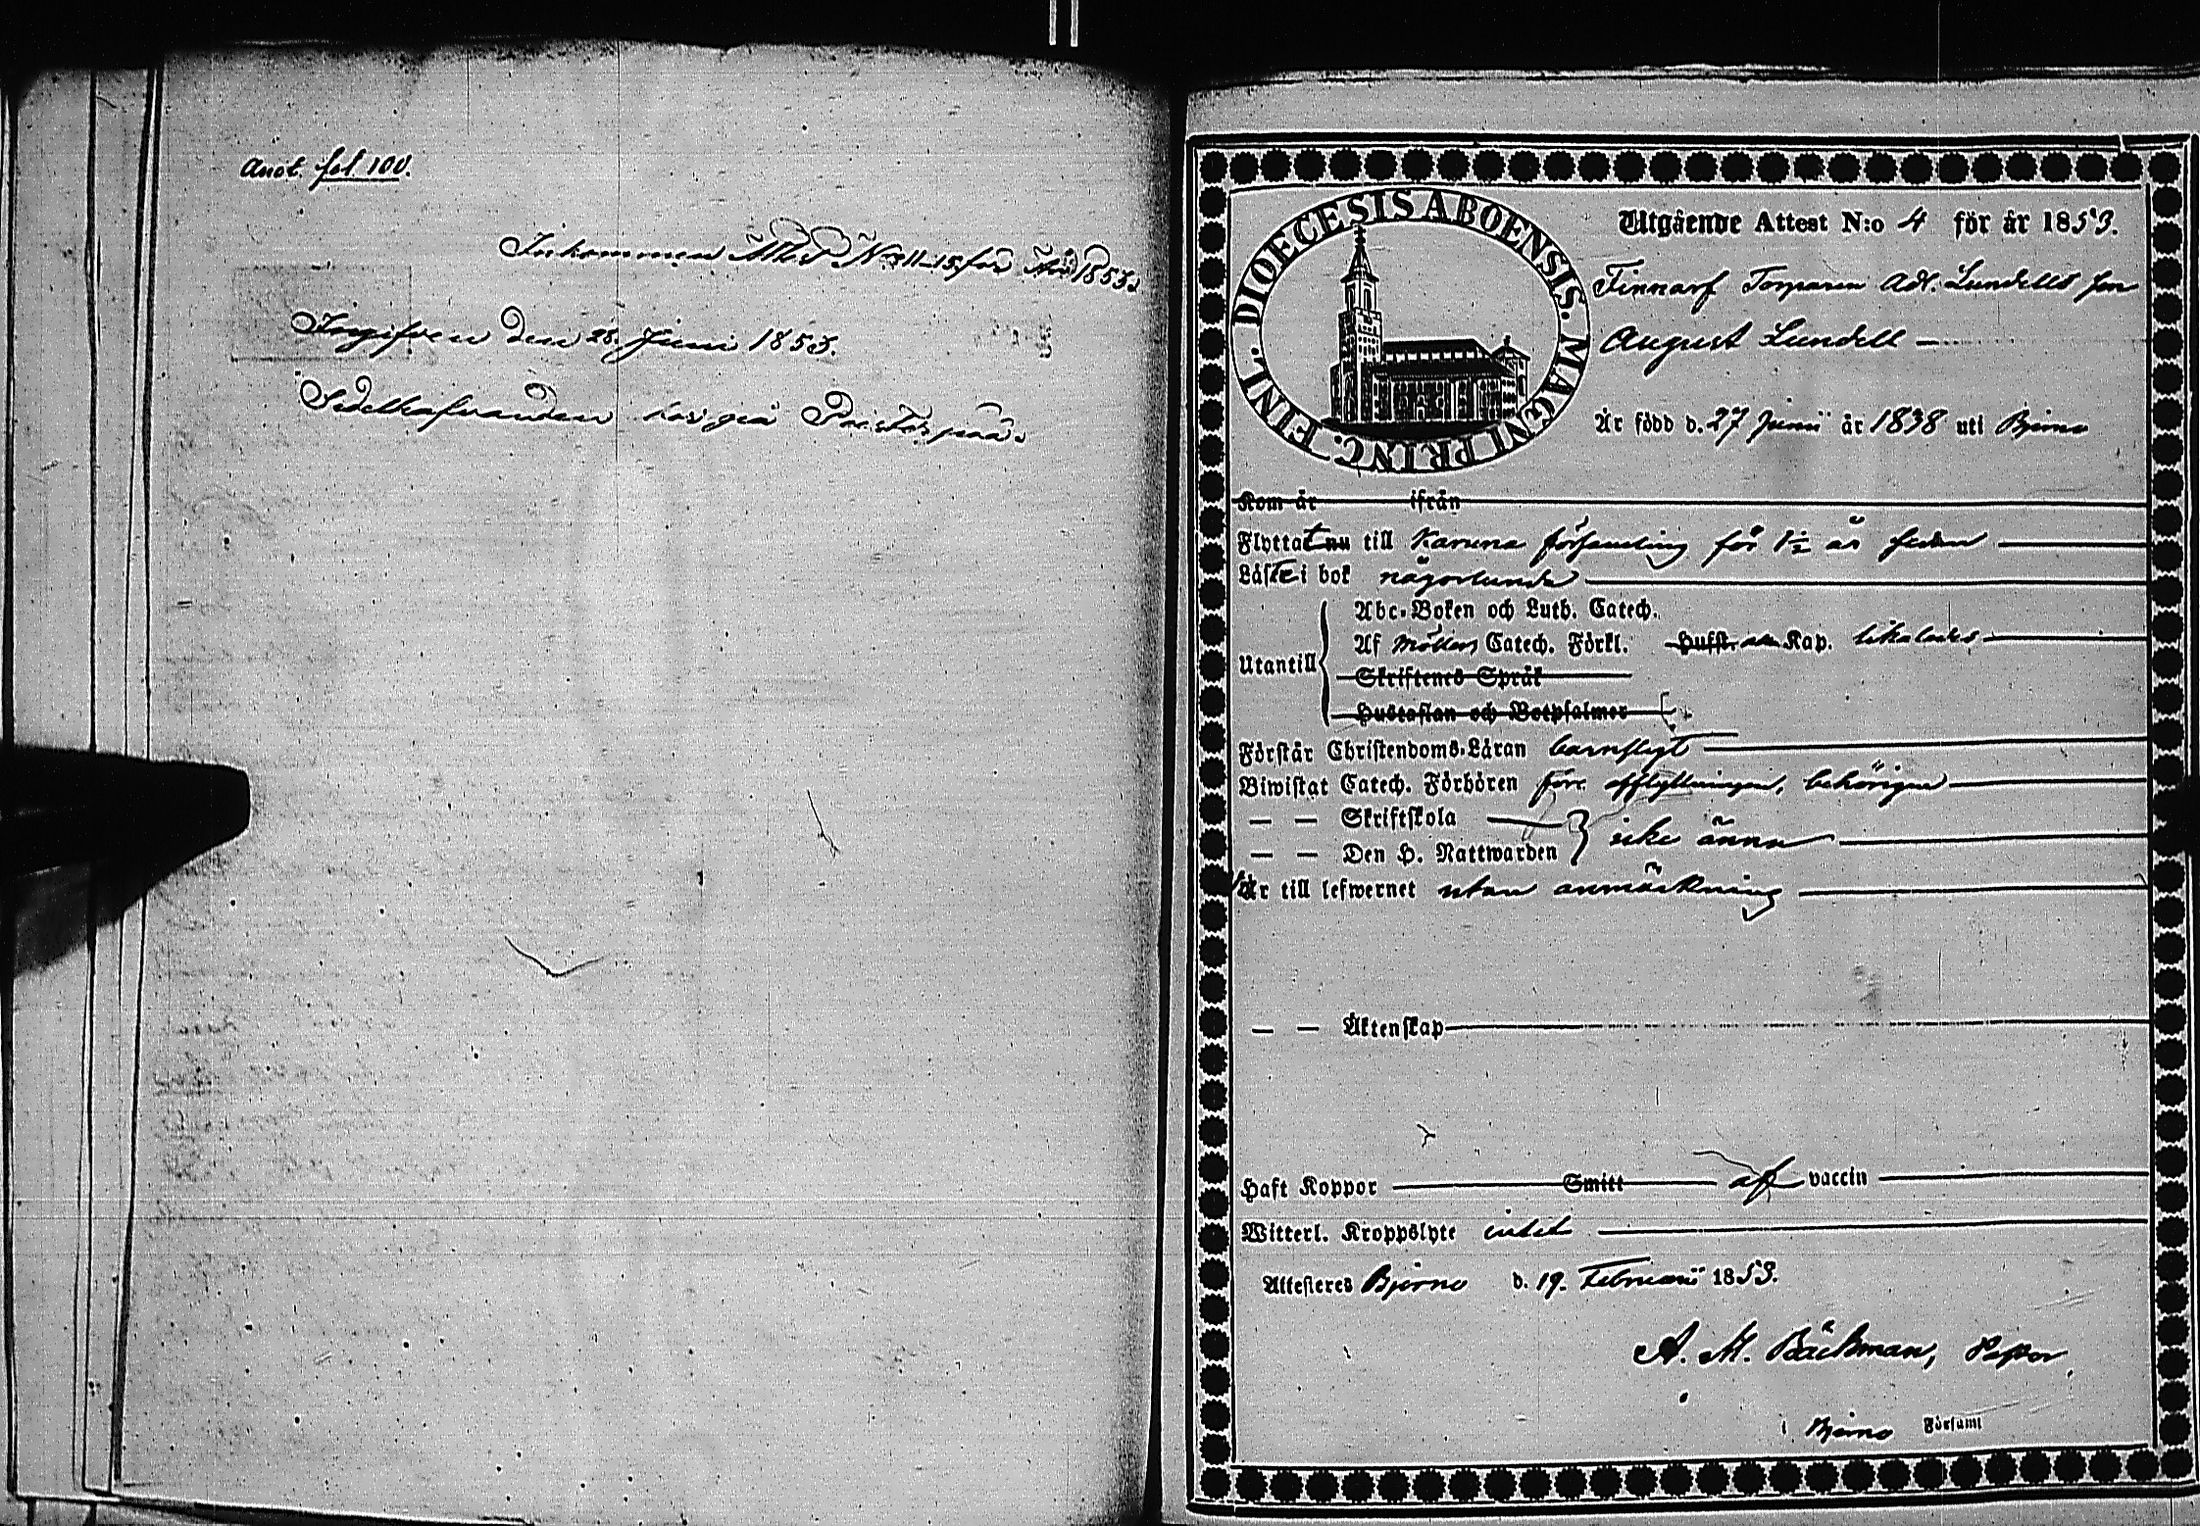 Anot. fol 100.
Inkommen Attest N:o 11 för År 1853.
Ingifven den 28 Juni 1853.
DIOECESIS ABOENSIS. MAGNI PRINC. FINL.
Utgående Attest N:o 4 för år 1853.
Finnarf Torparen Ad. Lundells son
August Lundell
Är född d. 27 Junii år 1838 uti Bjerno
Kom år ifrån
Flyttat nu till Karuna församling för 1½ år sedan
Läste i bok någorlunda
Utantill
Abc-Boken och Luth. Catech.
Af Möllers Catech. Förkl. Kap. likaledes
Skriftenes Språk
Hustaflan och Botpsalmer
Förstår Christendoms-Läran barnsligt
Biwistat Catech. Förhören före afflyttningen, behörigen
— — Skriftskola
— — Den H. Nattwarden } icke ännu
Är till lefwernet utan anmärkning
— — Äktenskap
Haft Koppor Smitt af vaccin
Witterl. Kroppslyte intet
Attesteres Bjerno d. 19. Februarii 1853.
A. M. Bäckman, Pastor
i Bjerno Församl